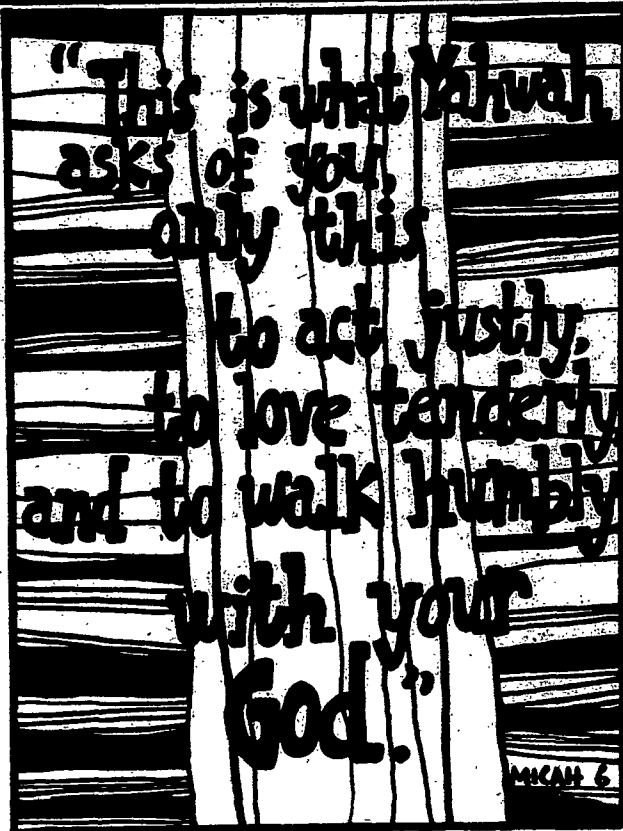 "This is what Yahwah
asks of you,
only this
to act justly,
to love tenderly
and to walk humbly
with your
God."
MICAH 6